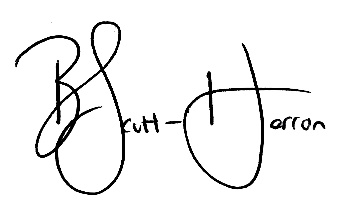 B Scutt-Herron